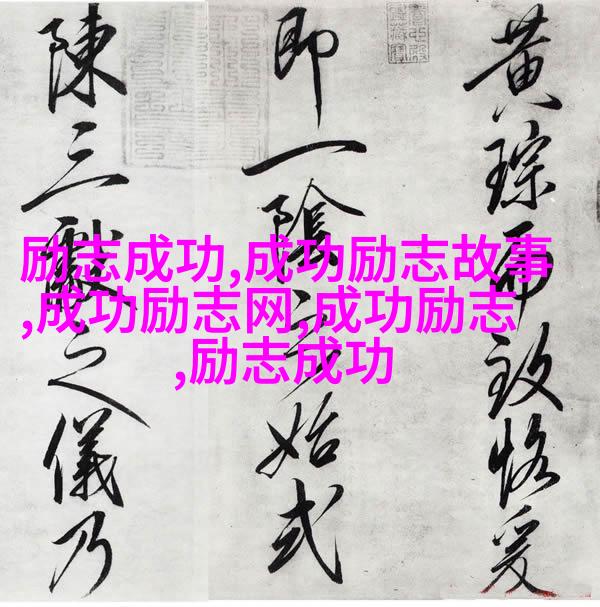 励志成功,成功励志故事
,成功励志网,成功励志
,励志成功
黄琮而致恪爰
即一陰之始式
陳三獻之儀乃